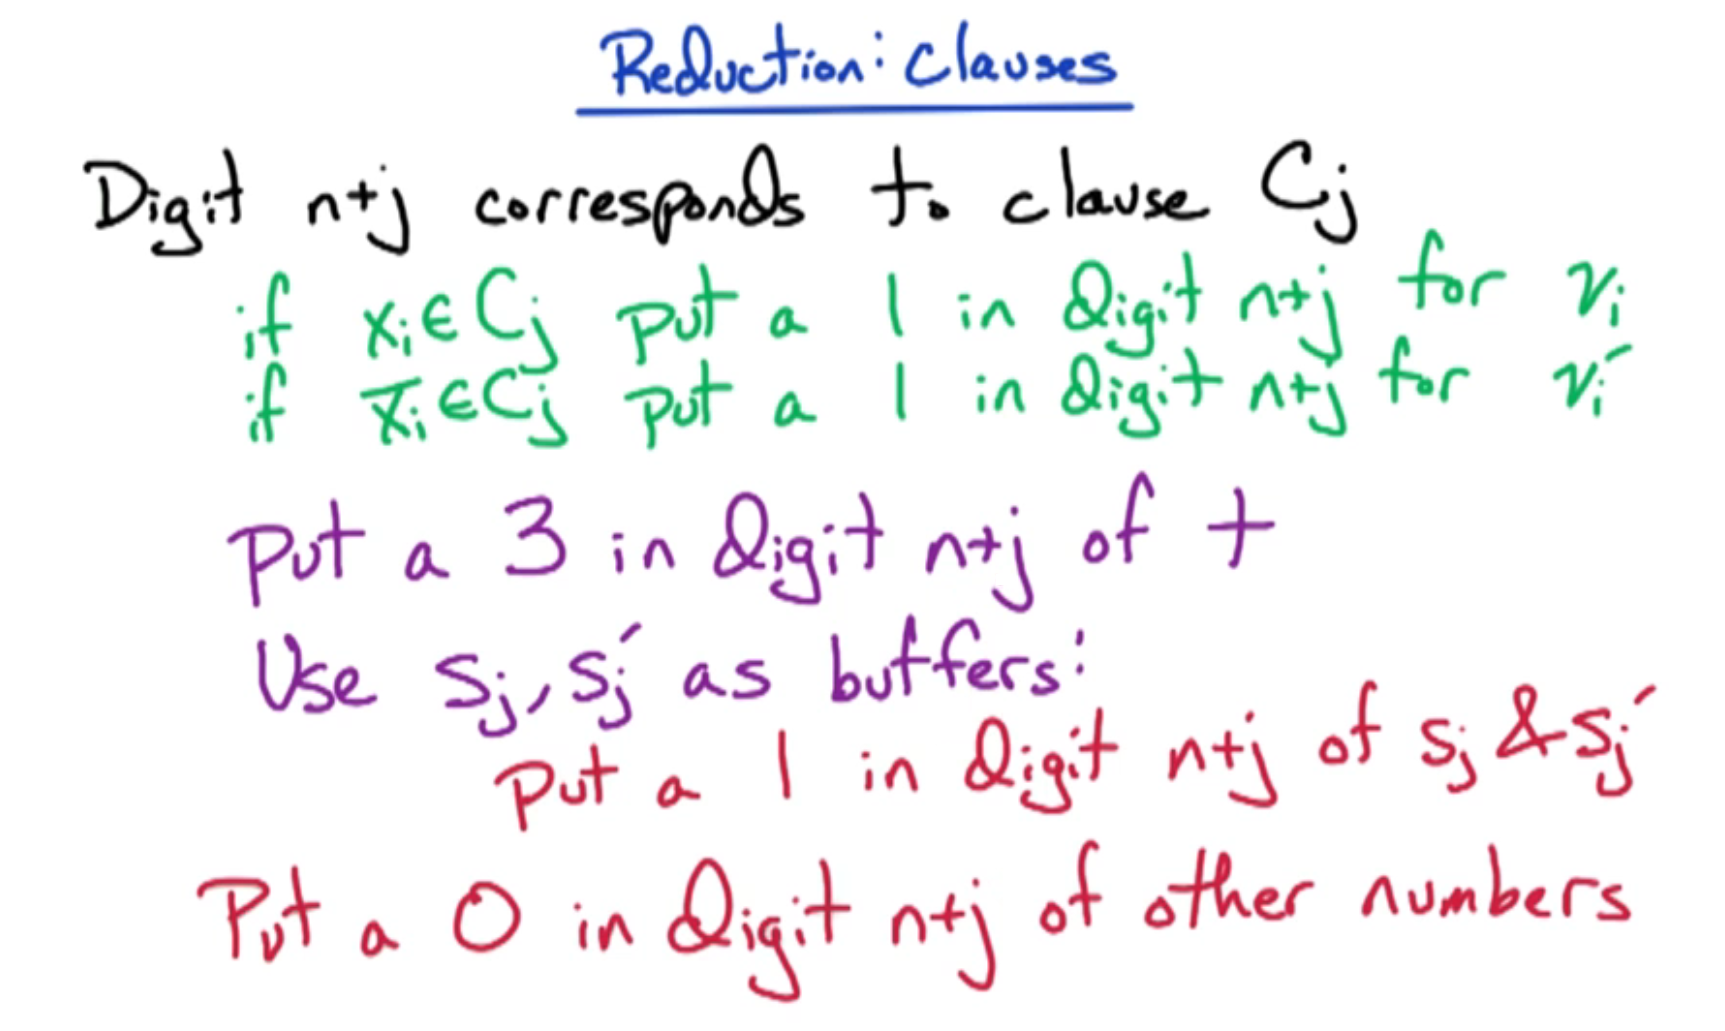 Reduction: Clauses
Digit n+j corresponds to clause Cj
if xi∈Cj put a 1 in digit n+j for vi
if x̅i∈Cj put a 1 in digit n+j for vi′
put a 3 in digit n+j of t
Use sj, sj′ as buffers:
put a 1 in digit n+j of sj & sj′
Put a 0 in digit n+j of other numbers